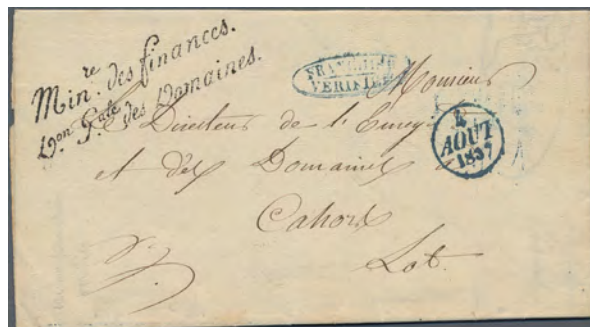 Min.re des finances.
Don G.ale des Domaines.
FRANCHISE
VERIFIÉE
Monsieur
Le Directeur de l'Enreg.
et des Domaines
AOUT
1837
Cahors
Lot.